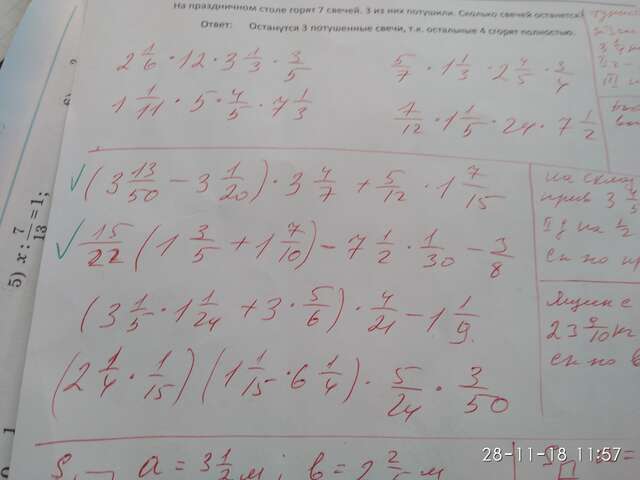 На праздничном столе горят 7 свечей. 3 из них потушили. Сколько свечей останется?
Ответ: Останутся 3 потушенные свечи, т.к. остальные 4 сгорят полностью.
2 1/6 · 12 · 3 1/3 · 3/5
5/7 · 1 1/3 · 2 4/5 · 3/4
1 1/11 · 5 · 4/5 · 7 1/3
1/12 · 1 1/5 · 24 · 7 1/2
√ (3 13/50 − 3 1/20) · 3 4/7 + 5/12 · 1 7/15
√ 15/22 (1 3/5 + 1 7/10) − 7 1/2 · 1/30 − 3/8
(3 1/5 · 1 1/24 + 3 · 5/6) · 4/21 − 1 1/9.
(2 1/4 · 1/15) (1 1/15 · 6 1/4) · 5/24 · 3/50
5) x : 7/13 = 1;
на склад
прив 3
II д на 1/2
Ящик с
23 9/10 кг
28-11-18 11:57